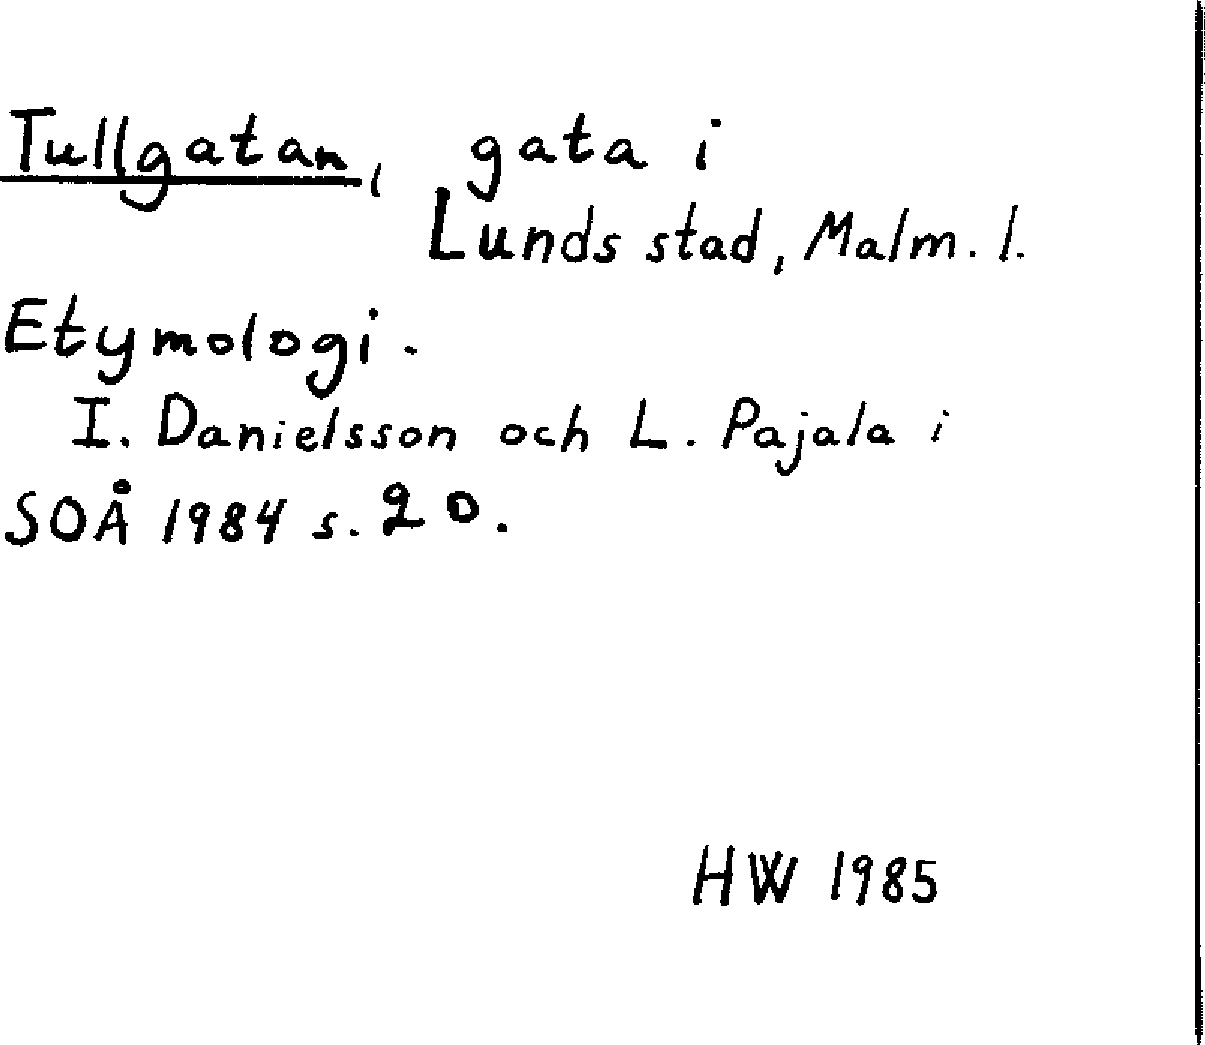 Tullgatan, gata i
Lunds stad, Malm. l.
Etymologi.
I. Danielsson och L. Pajala i
SOÅ 1984 s. 20.
HW 1985